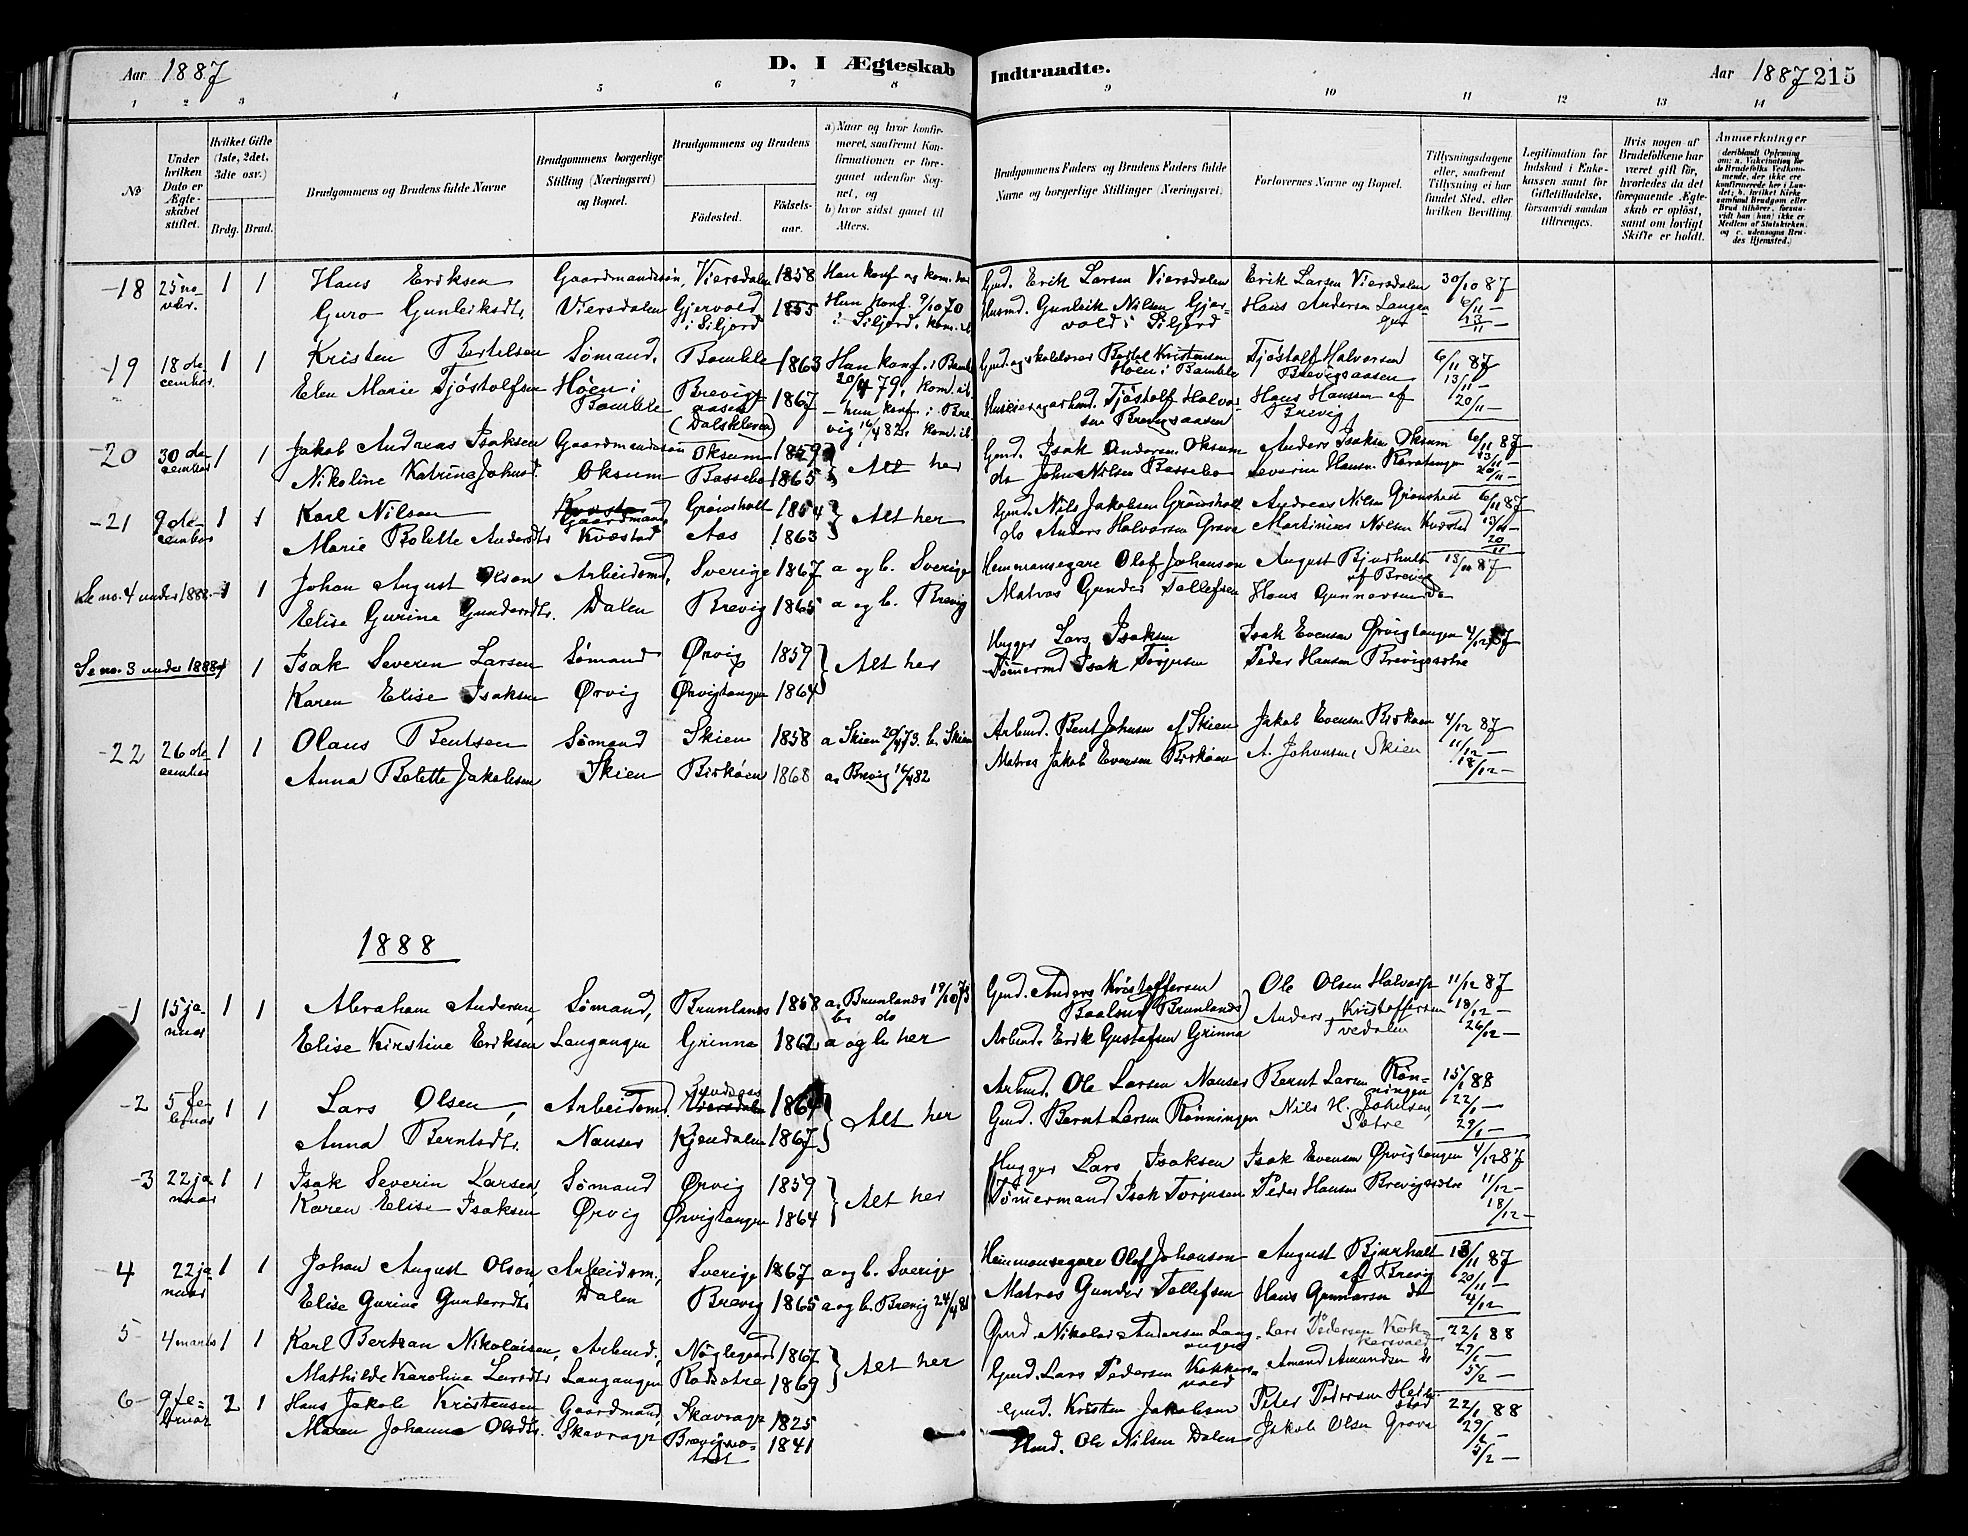 Aar 1887
D. I Ægteskab Indtraadte.
Aar 1887 215
1 2 3 4 5 6 7 8 9 10 11 12 13 14
No
Under hvilken Dato er Ægteskabet stiftet.
Hvilket Gifte (1ste, 2det, 3die osv.)
Brdg. Brud.
Brudgommens og Brudens fulde Navne
Brudgommens borgerlige Stilling (Næringsvei) og Bopæl.
Brudgommens og Brudens
Födested.
Födselsaar.
a) Naar og hvor konfirmeret, saafremt Konfirmationen er foregaaet udenfor Sognet, og
b) hvor sidst gaaet til Alters.
Brudgommens Faders og Brudens Faders fulde Navne og borgerlige Stillinger (Næringsvei).
Forlovernes Navne og Bopæl.
Tillysningsdagene eller, saafremt Tillysning ei har fundet Sted, efter hvilken Bevilling.
Legitimation for Indskud i Enkekassen samt for Giftetilladelse, forsaavidt saadan tiltrænges.
Hvis nogen af Brudefolkene har været gift för, hvorledes da det foregaaende Ægteskab er oplöst, samt om lovligt Skifte er holdt.
Anmerkninger
(deriblandt Oplysning om: a. Vakcination for de Brudefolks Vedkommende, der ikke ere konfirmerede her i Landet; b. hvilket Kirkesamfund Brudgom eller Brud tilhörer, forsaavidt han (hun) ikke er Medlem af Statskirken, og c. udensogns Brudes Hjemsted.)
-18 25 november. 1 1 Hans Eriksen Gaardmandssön, Viersdalen 1858 Han konf og kom. her Gmd. Erik Larsen Viersdalen Erik Larsen Viersdalen 30/10 87
Guro Gunleiksdtr. Viersdalen Gjervold i Siljord 1855 Hun konf. 9/10 70 i Siljord. kom. il Husmd. Gunleik Nilsen Gjervold i Siljord Hans Andersen Langen 6/11 - 13/11 -
-19 18 december 1 1 Kristen Bertelsen Sømand, Bamble 1863 Han konf. i Bamb 20/4 79, kom. il Gmd. og skolelærer Bertel Kristensen Höen i Bamble Tjöstolf Halvorsen Brevigsaasen 6/11 87
Elen Marie Tjöstolfsen Höen i Bamble Brevigsaasen (Dalskleven) 1867 - hun konf. i Brevig 16/4 82, kom. il Tjöstolf Halvorsen Brevigsaasen Hans Hansen af Brevig 13/11 - 20/11 -
-20 30 december 1 1 Jakob Andreas Isaksen Gaardmandssön Oksum 1859 } Alt her Gmd. Isak Andersen Oksum Anders Isaksen Oksum 6/11 87
Nikoline Katrine Johnsd. Oksum Bassebo 1865 do John Nilsen Bassebo Severin Hansen 13/11 - 20/11 -
-21 9 december 1 1 Karl Nilsen Gaardmand Grönsholt 1854 } Alt her Gmd. Nils Jakobsen Grönsholt Andreas Nilsen Grönsholt 6/11 87
Marie Bolette Andersdtr. Kvæstad Aas 1863 do Anders Halvorsen Grava Martinius Nilsen Kvæstad 13/11 - 20/11
Se no. 4 under 1888. 1 1 Johan August Olson Arbeidsmd, Sverige 1867 a og b. Sverige Hemmansegare Olof Johanson August Bjurhult af Brevig 13/11 87
Elise Gurine Gundersdtr. Dalen Brevig 1865 a og b. Brevig Matros Gunder Tollefsen Hans Gunnarsen do
Se no. 3 under 1888 1 1 Isak Severin Larsen Sømand Ørvig 1859 } Alt her Hugger Lars Isaksen Isak Evensen Ørvigtangen 4/12 87
Karen Elise Isaksen Ørvig Ørvigtangen 1864 Tömermd Isak Torjusen Peder Hansen Brevigsætre
-22 26 december 1 1 Olaus Bentsen Sømand Skien 1858 a Skien 20/4 73. b. Skien Arbmd. Bent Johnsen af Skien Jakob Evensen Birköen 4/12 87
Anna Bolette Jakobsen Skien Birköen 1868 a. Brevig 16/4 82 Matros Jakob Evensen Birköen A. Johansen, Skien 11/12 - 18/12 -
1888
-1 15 januar 1 1 Abraham Andersen, Sømand, Brunlanes 1858 a. Brunlanes 17/10 75 b. do Gmd. Anders Kristoffersen (Brunlanes) Ole Olsen 11/12 87
Elise Kirstine Eriksen Langangen Grinna 1862 a og b. her Arbmd. Erik Gustafsen Grinna Anders Kristoffersen Tvedalen 18/12 - 26/12 -
-2 5 februar 1 1 Lars Olsen, Arbeidsmd. 1864 } Alt her Arbmd. Ole Larsen Nanset Bernt Larsen Rönningen 15/1 88
Anna Berntsdtr. Nanset Kjendalen 1867 Gmd. Bernt Larsen Rönningen Nils H. Johnsen, Sætre 22/1 - 29/1 -
-3 22 januar 1 1 Isak Severin Larsen Sømand Ørvig 1859 } Alt her Hugger Lars Isaksen Isak Evensen Ørvigtangen 4/12 87
Karen Elise Isaksen Ørvig Ørvigtangen 1864 Tömermand Isak Torjusen Peder Hansen Brevigsætre 11/12 - 18/12 -
4 22 januar 1 1 Johan August Olson Arbeidsm., Sverige 1867 a og b. Sverige Hemmansegare Olof Johanson August Bjurhult af Brevig 13/11 87
Elise Gurine Gundersdtr Dalen Brevig 1865 a og b. Brevig 24/4 81 Matros Gunder Tollefsen Hans Gunnarsen do 20/11 - 4/12
5 4 marts 1 1 Karl Bertran Nikolaisen, Arbmd., Nöglegaard 1867 } Alt her Gmd. Nikolai Andersen Langangen Lars Pedersen Kokkersvold 22/1 88
Mathilde Karoline Larsdtr Langangen Rødsætre 1869 Gmd. Lars Pedersen Kokkersvold Amund Amundsen do 29/1 - 5/2 -
6 9 februar 2 1 Hans Jakob Kristensen Gaardmand, Skavrager 1825 Gmd. Kristen Jakobsen Peter Pedersen Heistad 22/1 88
Maren Johanne Olsdtr. Skavrager 1841 Hmd. Ole Nilsen Dalen Jakob Olsen Grava 29/1 - 5/2 -